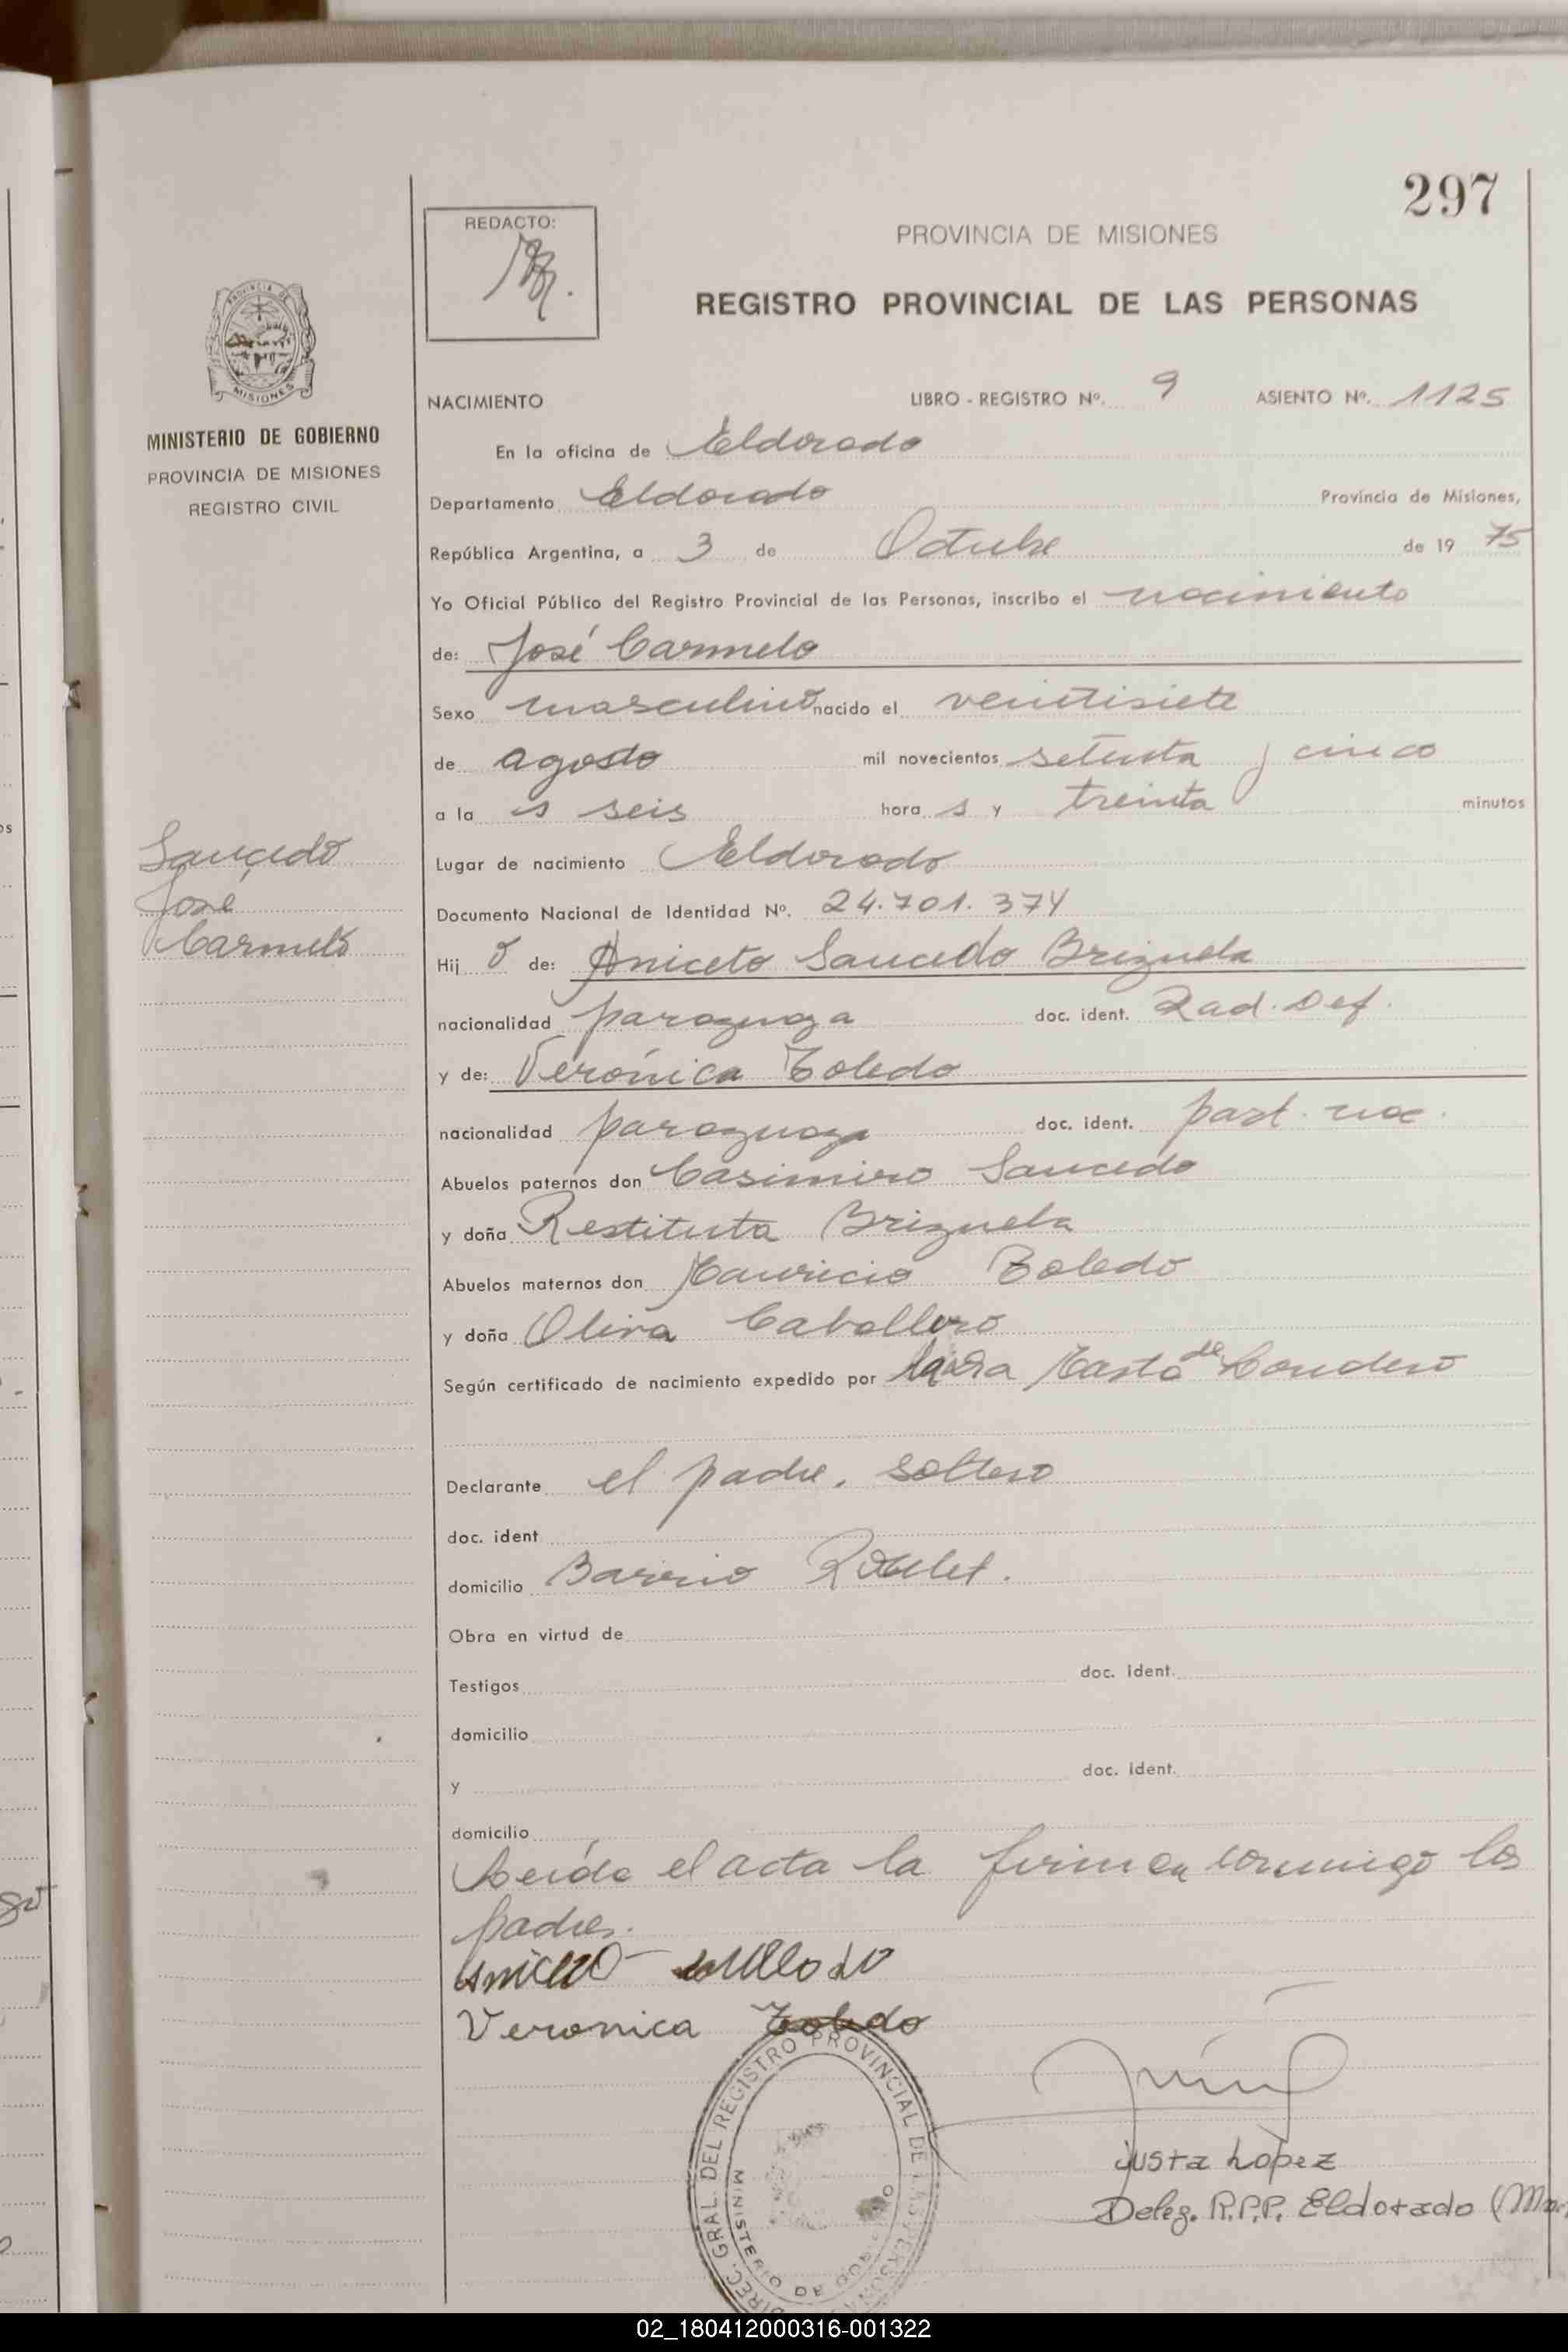 297
REDACTO:
PROVINCIA DE MISIONES
REGISTRO PROVINCIAL DE LAS PERSONAS
PROVINCIA DE
MISIONES
MINISTERIO DE GOBIERNO
PROVINCIA DE MISIONES
REGISTRO CIVIL
NACIMIENTO LIBRO - REGISTRO Nº. 9 ASIENTO Nº. 1125
En la oficina de Eldorado
Departamento Eldorado Provincia de Misiones,
República Argentina, a 3 de Octubre de 19 75
Yo Oficial Público del Registro Provincial de las Personas, inscribo el nacimiento
de: José Carmelo
Sexo masculino nacido el veintisiete
de agosto mil novecientos setenta y cinco
a la s seis hora s y treinta minutos
Saucedo
José
Carmelo
Lugar de nacimiento Eldorado
Documento Nacional de Identidad Nº. 24.701.374
Hij o de: Aniceto Saucedo Brizuela
nacionalidad paraguaya doc. ident. Rad. Def.
y de: Verónica Toledo
nacionalidad paraguaya doc. ident. part. nac.
Abuelos paternos don Casimiro Saucedo
y doña Restituta Brizuela
Abuelos maternos don Mauricio Toledo
y doña Oliva Caballero
Según certificado de nacimiento expedido por de
Declarante el padre. soltero
doc. ident
domicilio Barrio
Obra en virtud de
Testigos doc. ident.
domicilio
y doc. ident.
domicilio
Leída el acta la firman conmigo los
padres.
Veronica Toledo
DIREC. GRAL. DEL REGISTRO PROVINCIAL DE LAS PERSONAS
MINISTERIO DE GOBIERNO
Justa Lopez
Deleg. R.P.P. Eldorado
02_180412000316-001322